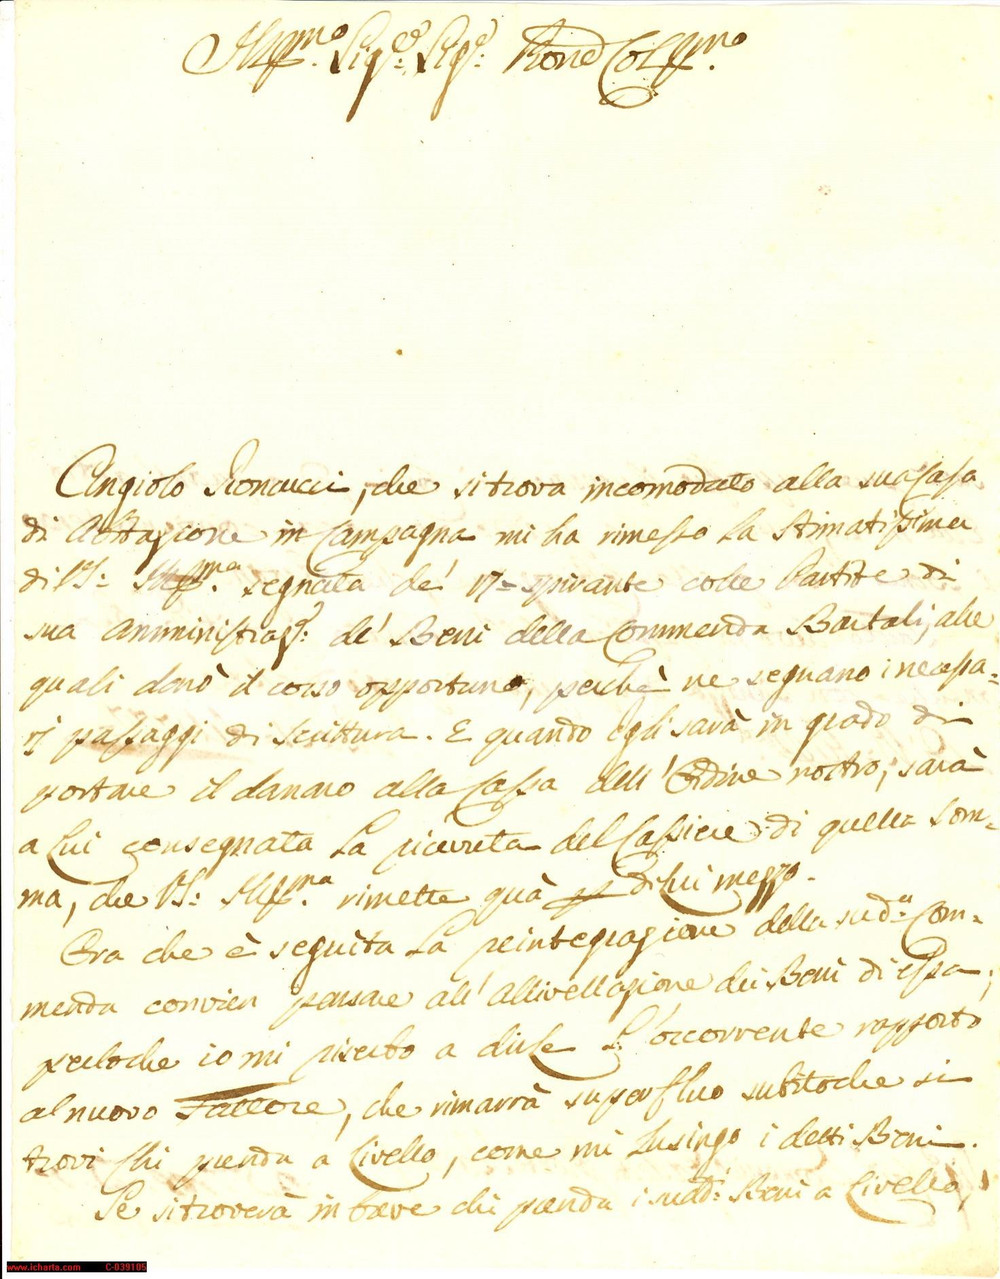 Illmo. Sigre. Sigre. Prone Colmo.
Angiolo Roncucci, che si trova incomodato alla sua Casa
di Abitazione in Campagna mi ha rimesso la stimatissima
di VS: Illma. segnata de' 17 = spirante colle Partite di
sua Amministraze: de' Beni della Commenda Bartali, alle
quali darò il corso opportuno, perchè ne seguano i necessa-
rj passaggi di scrittura. E quando Egli sarà in grado di
portare il danaro alla Cassa dell' Ordine nostro, sarà
a Lui consegnata la ricevuta del Cassiere di quella Som-
ma, che VS: Illma. rimette quà p di Lui mezzo.
Ora che è seguita la reintegrazione della suda. Com-
menda convien pensare all' Allivellazione dei Beni di essa,
perloche io mi riserbo a dirle l'occorrente rapporto
al nuovo Fattore, che rimarrà superfluo subitoche si
trovi chi prenda a Livello, come mi lusingo i detti Beni.
Se si troverà in breve chi prenda i sudd: Beni a Livello,
www.icharta.com C-039105